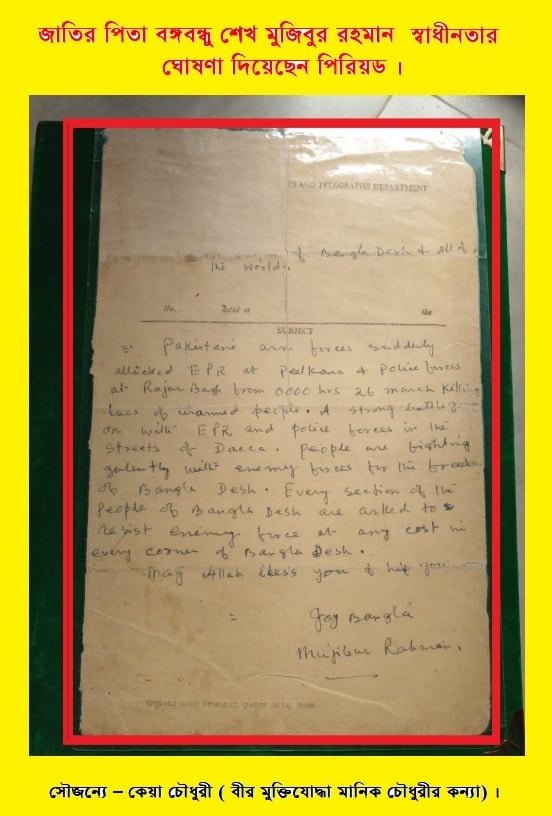 জাতির পিতা বঙ্গবন্ধু শেখ মুজিবুর রহমান স্বাধীনতার
ঘোষণা দিয়েছেন পিরিয়ড ।
AND TELEGRAPHS DEPARTMENT
of Bangla Desh & All of
The World.
No. dated at the
SUBJECT
Pakistani arm forces suddenly
attacked EPR at Peelkana & Police forces
at Rajar Bagh from 0000 hrs 26 march killing
lacs of unarmed people. A strong battle
on with EPR and police forces in the
streets of Dacca. People are fighting
galantly with enemy forces for the freedom
of Bangla Desh. Every section of the
People of Bangla Desh are asked to
resist enemy force at any cost in
every corner of Bangla Desh.
May Allah bless you & help you
=
Joy Bangla
Mujibur Rahman.
সৌজন্যে – কেয়া চৌধুরী ( বীর মুক্তিযোদ্ধা মানিক চৌধুরীর কন্যা) ।